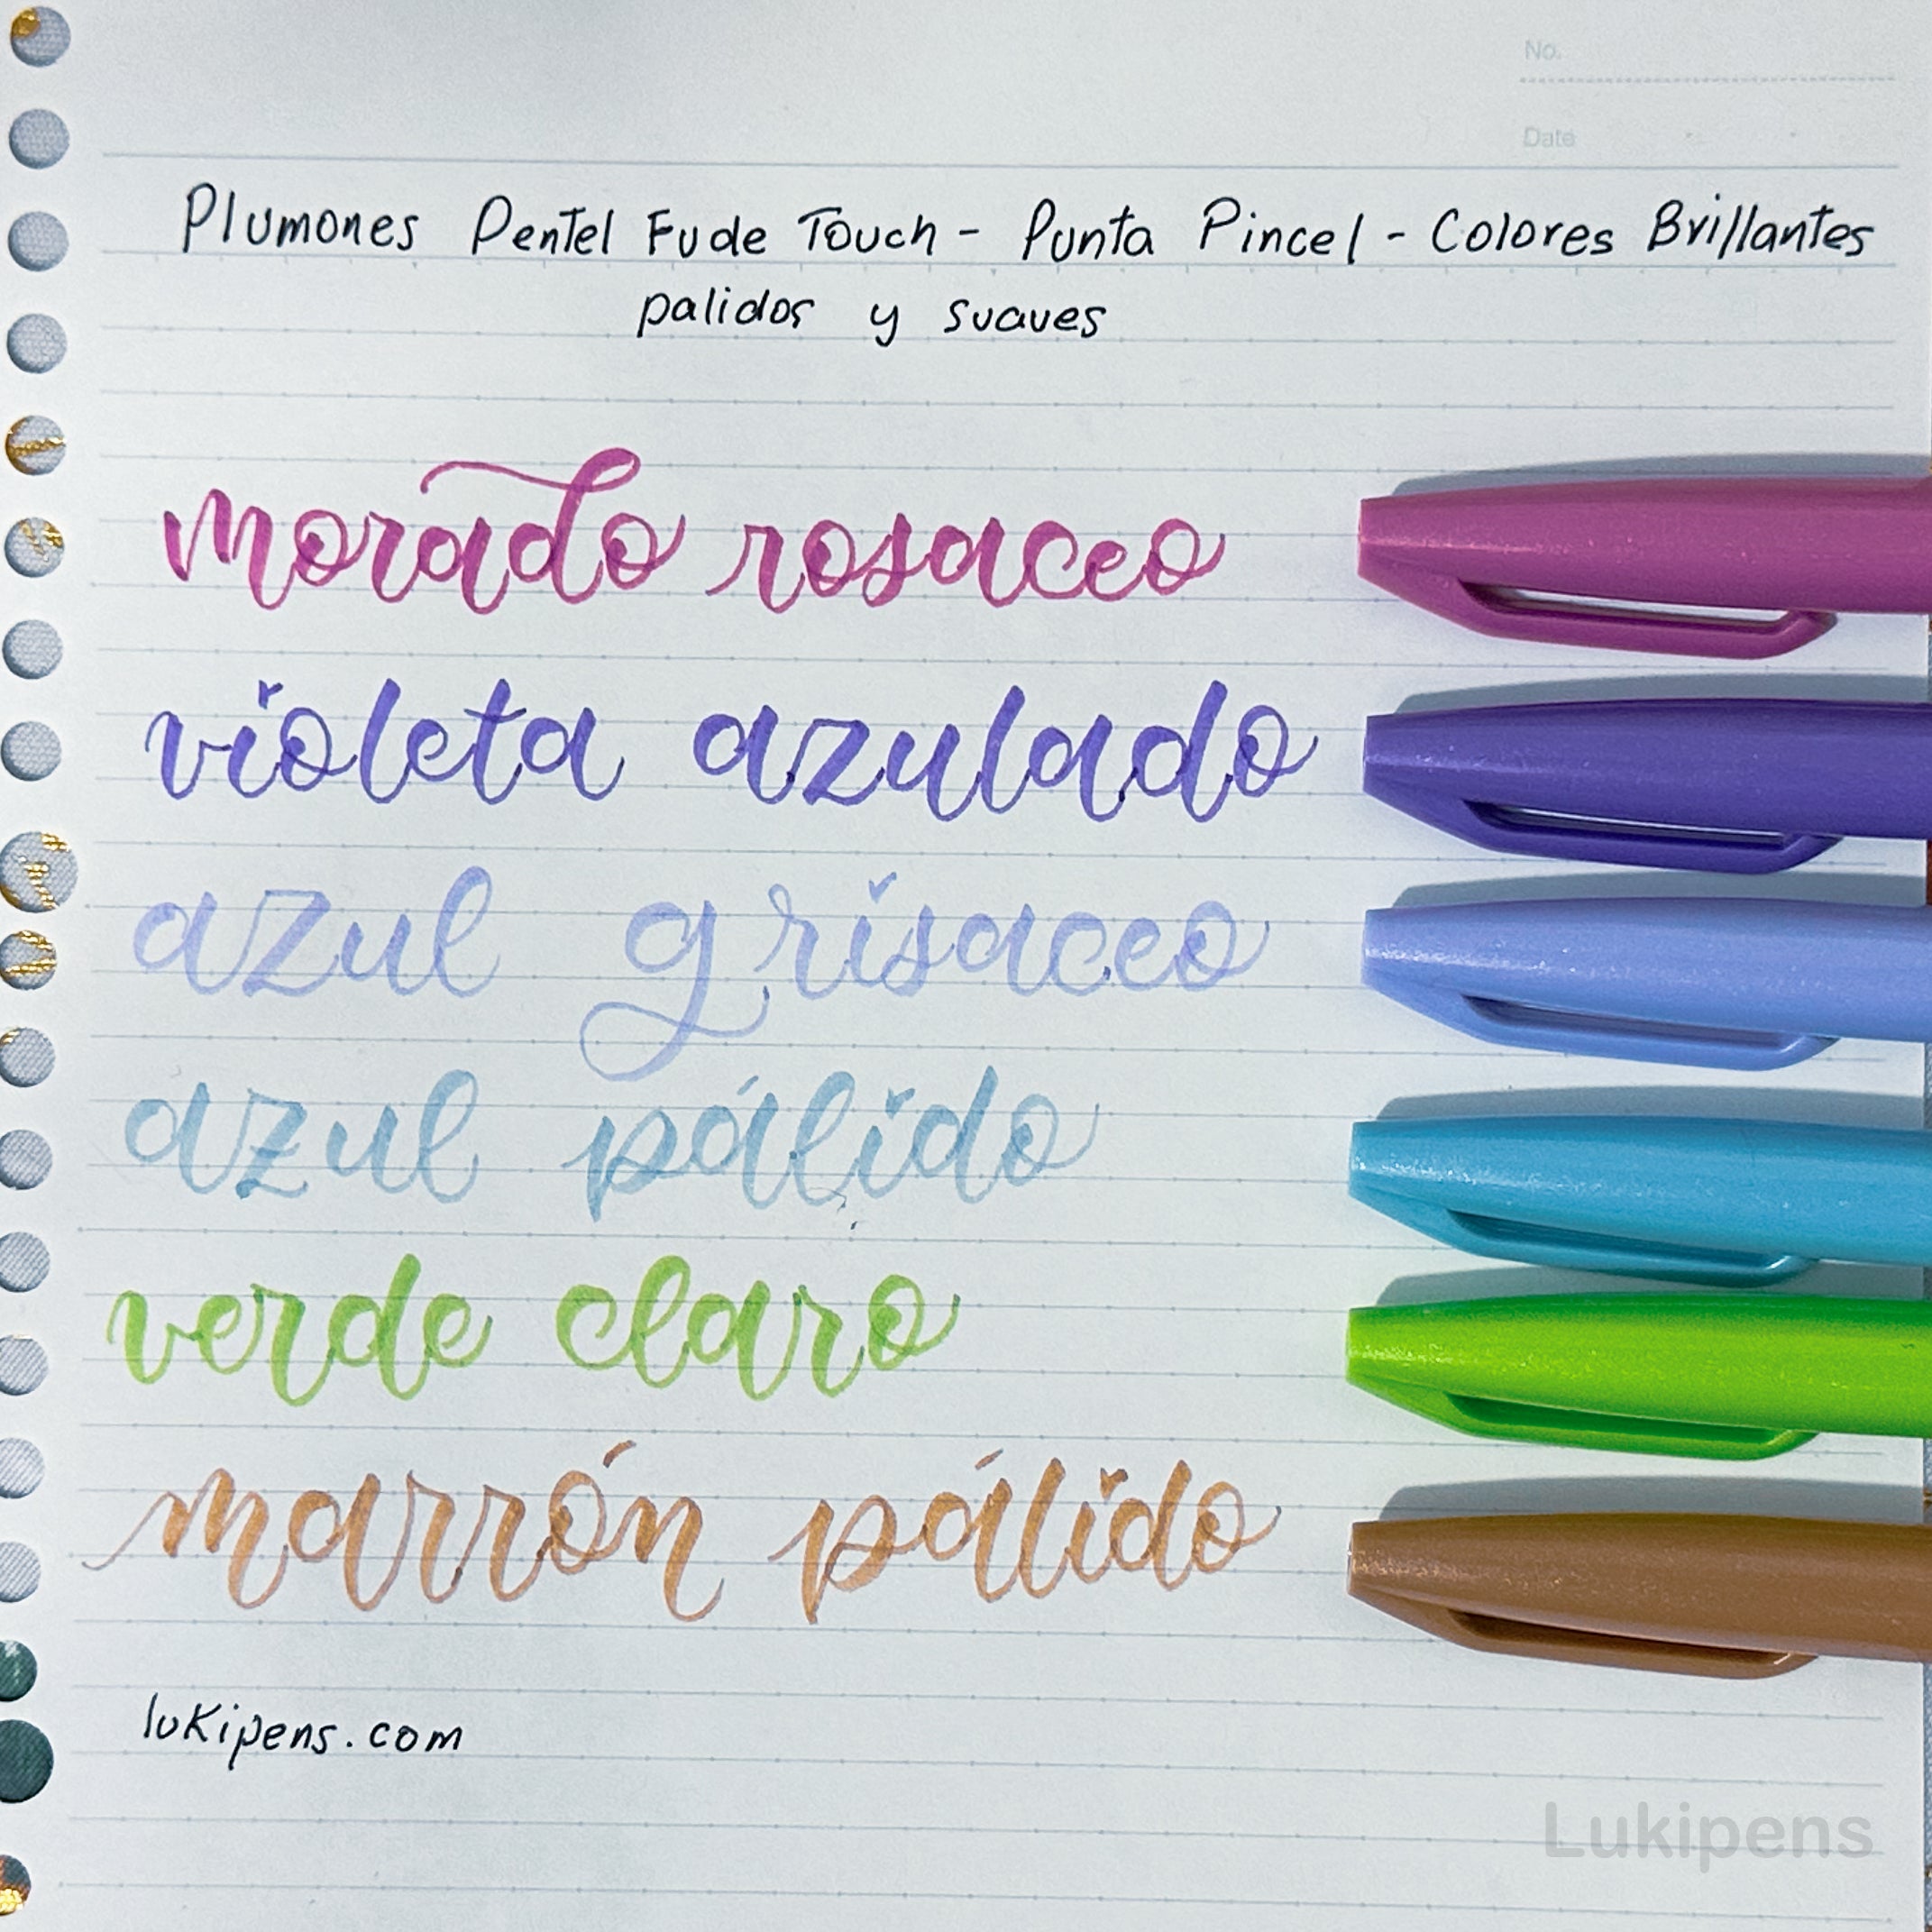 No.
Date
Plumones Pentel Fude Touch - Punta Pincel - Colores Brillantes
palidos y suaves
morado rosaceo
violeta azulado
azul grisaceo
azul pálido
verde claro
marrón pálido
lukipens.com
Lukipens